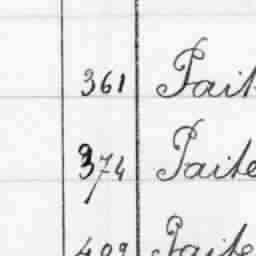 361 Pait
374 Paite
409 Paite